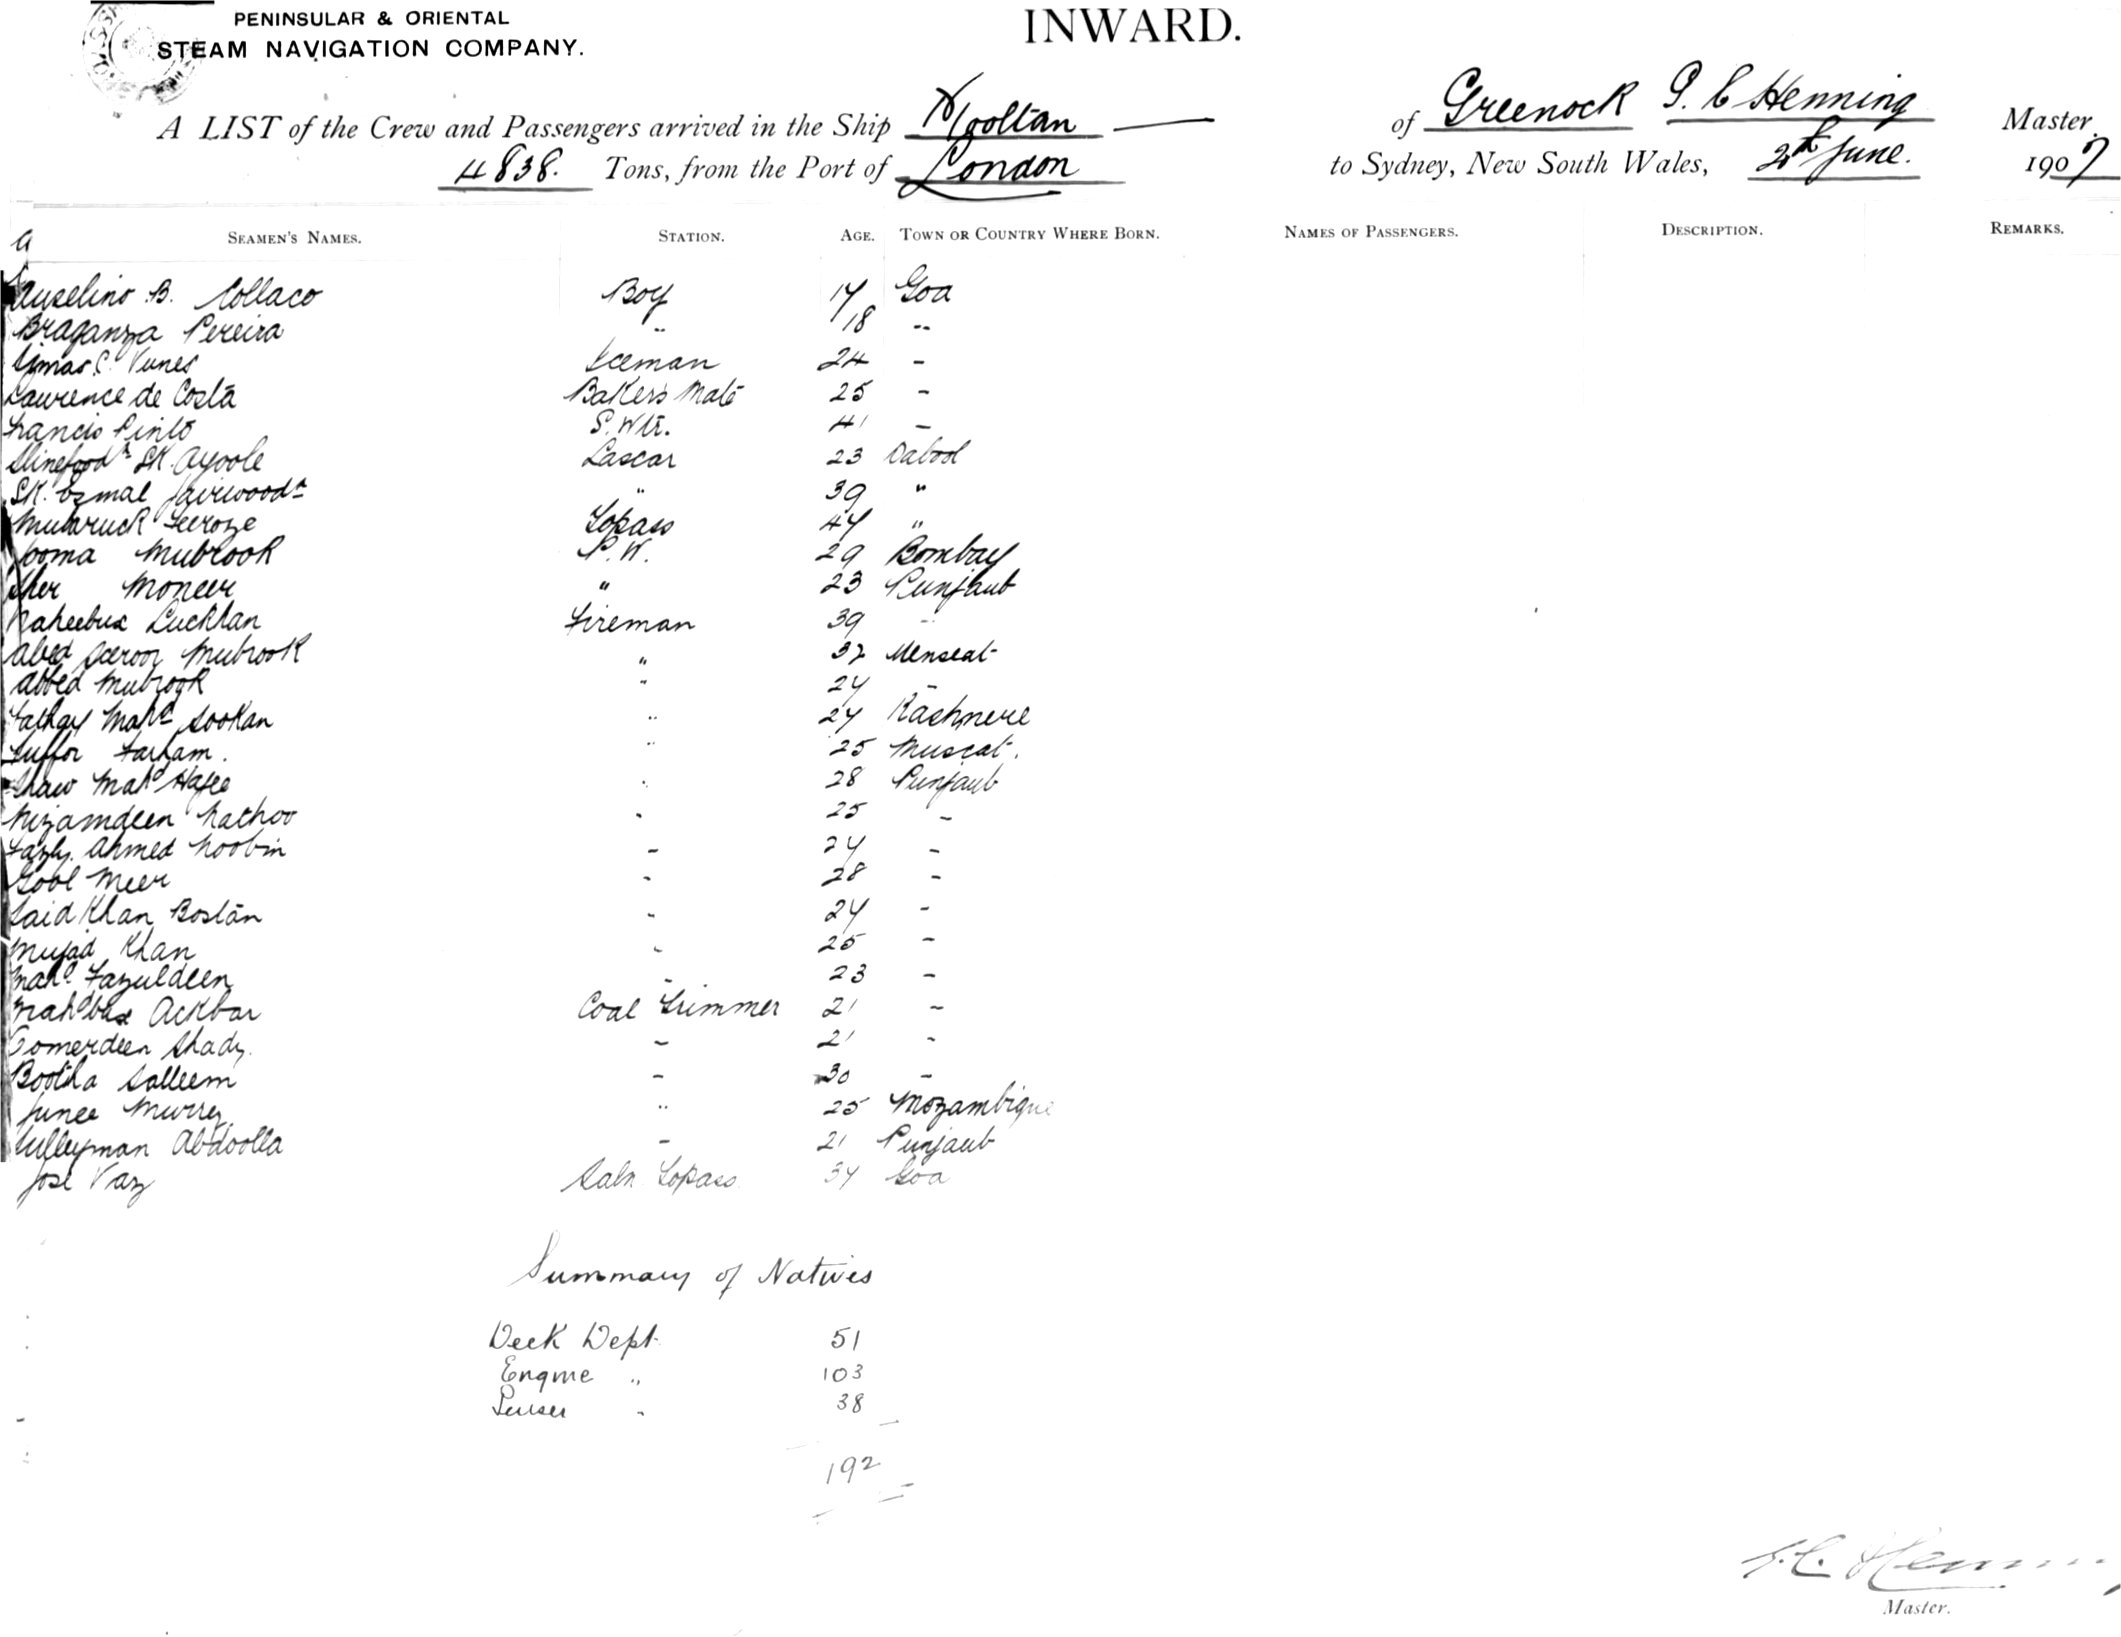 PENINSULAR & ORIENTAL
STEAM NAVIGATION COMPANY.
INWARD.
A LIST of the Crew and Passengers arrived in the Ship Mooltan of Greenock G. C Henning Master.
4838. Tons, from the Port of London to Sydney, New South Wales, June. 1907
SEAMEN'S NAMES. STATION. AGE. TOWN OR COUNTRY WHERE BORN. NAMES OF PASSENGERS. DESCRIPTION. REMARKS.
Auselino B. Collaco Boy 17 Goa
Braganza Pereira " 18 "
Nunes Iceman 24 -
Lawrence de Costa Bakers Mate 25 -
Francis Pinto P. Wtr. 41 -
SK. Ayoole Lascar 23 Dabool
SK. Esmal " 39 "
Mubaruck Feeroze Topass 47 "
Jooma Mubrook P.W. 29 Bombay
Sher Moneer " 23 Punjaub
Raheebux Luckhan Fireman 39 -
Abed Mubrook " 32 Menseat
Abbed Mubrook " 27 -
Mahd Sookan " 27 Kashmere
Farham. " 25 Muscat.
Shaw Mahd Hafee " 28 Punjaub
Nizamdeen Nathoo " 25 -
Fazly Ahmed Noobin - 27 -
Gool Meer - 28 -
Said Khan Bostan - 27 -
Mujad Khan - 25 -
Mahd. Fazuldeen - 23 -
Mahdbux Ackbar Coal Trimmer 21 -
Oomerdeen Shady. - 21 -
Bootha Salleem - 30 -
Junee Murrey " 25 Mozambique
Sulleyman Abdoolla - 21 Punjaub
Jose Vaz Saln Topass 37 Goa
Summary of Natives
Deck Dept. 51
Engine " 103
Purser " 38
192
G. C. Henning
Master.